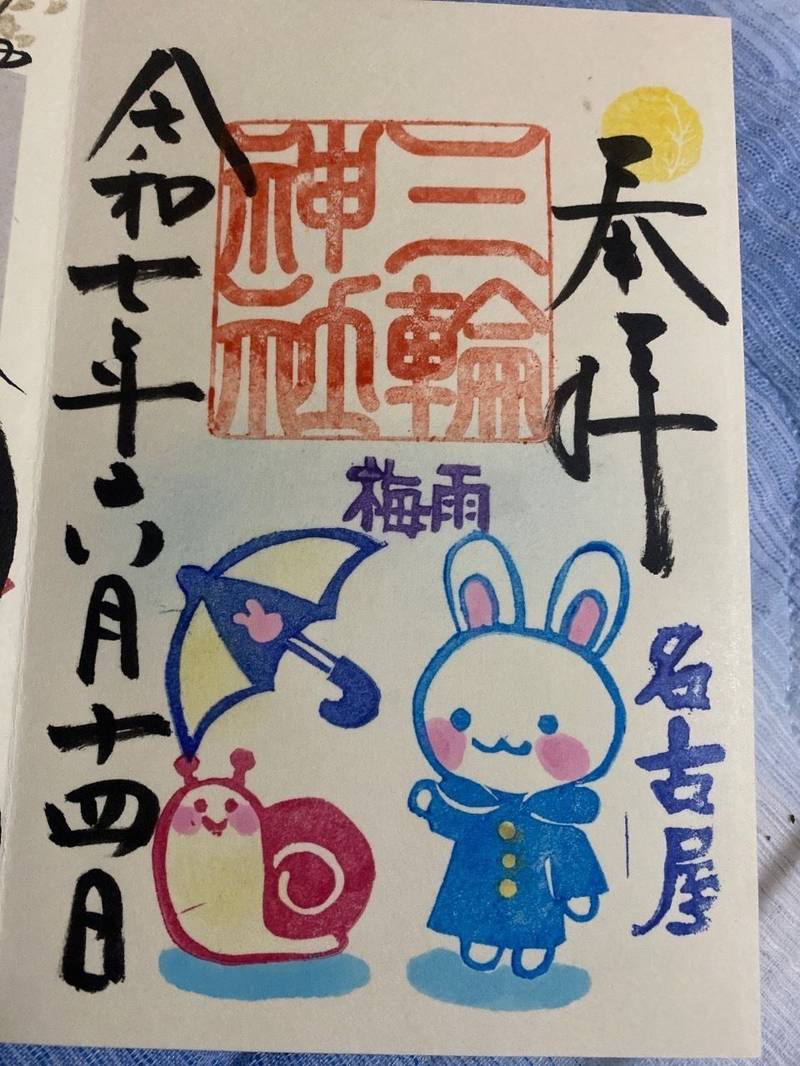 奉拝
名古屋
三輪
神社
梅雨
令和七年六月十四日